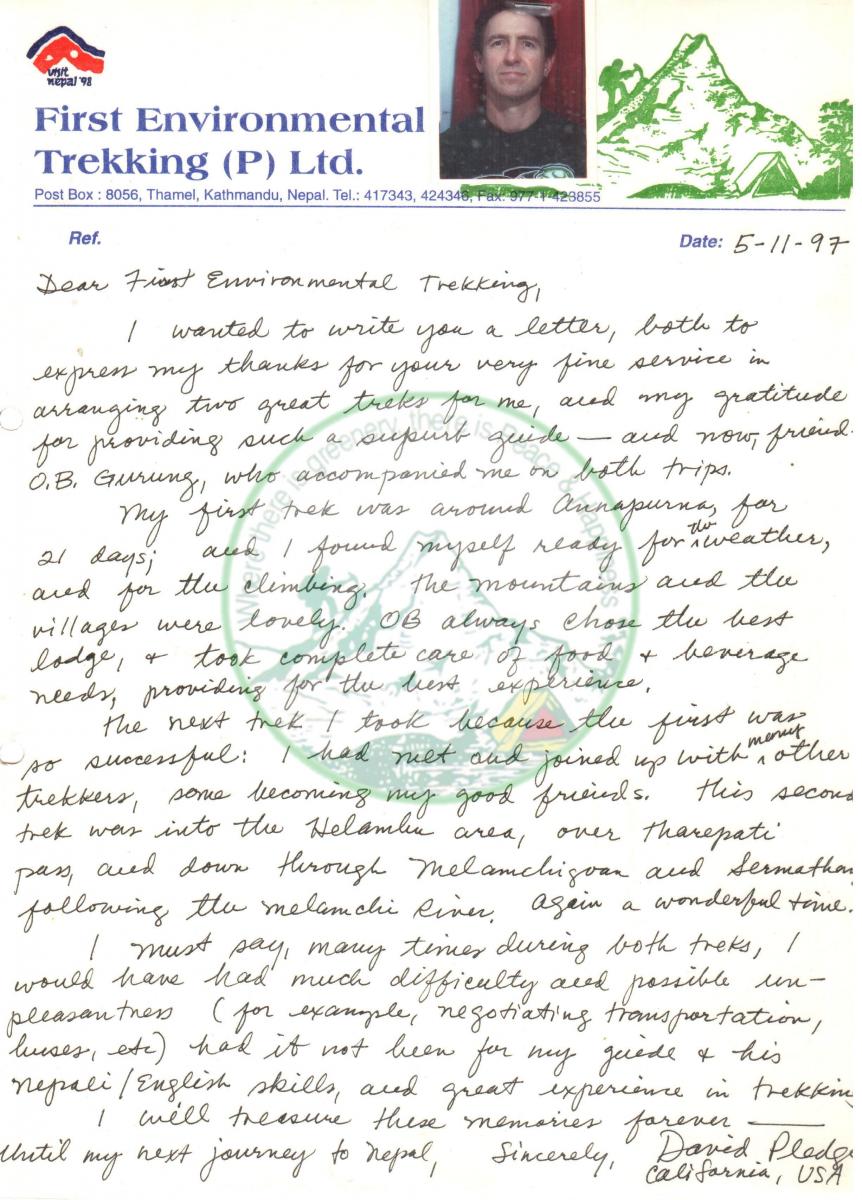 visit
nepal '98
First Environmental
Trekking (P) Ltd.
Post Box : 8056, Thamel, Kathmandu, Nepal. Tel.: 417343, 424346, Fax: 977-1-423855
Ref.
Date: 5-11-97
Dear First Environmental Trekking,
I wanted to write you a letter, both to
express my thanks for your very fine service in
arranging two great treks for me, and my gratitude
for providing such a supurb guide — and now, friend -
O.B. Gurung, who accompanied me on both trips.
My first trek was around Annapurna, for
21 days; and I found myself ready for the weather,
and for the climbing. The mountains and the
villages were lovely. OB always chose the best
lodge, & took complete care of food & beverage
needs, providing for the best experience.
The next trek I took because the first was
so successful: I had met and joined up with many other
trekkers, some becoming my good friends. This second
trek was into the Helambu area, over Tharepati
pass, and down through Melamchigoan and Sermathan
following the Melamchi River. Again a wonderful time.
I must say, many times during both treks, I
would have had much difficulty and possible un-
pleasantness (for example, negotiating transportation,
buses, etc) had it not been for my guide & his
Nepali/English skills, and great experience in trekking
I will treasure these memories forever —
Until my next journey to Nepal, Sincerely, David Pledge
California, USA
Where there is greenery, there is Peace & Happiness